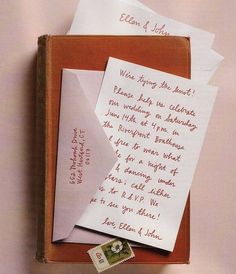 Ellen & John
We're tying the knot!
Please help us celebrate
our wedding on Saturday
June 14th at 6 pm in
the Riverfront Boathouse
free to wear what
for a night of
dancing under
call either
us to R.S.V.P. We
to see you there!
love, Ellen & John
652 Mohawk Drive
West Hartford, CT
06117